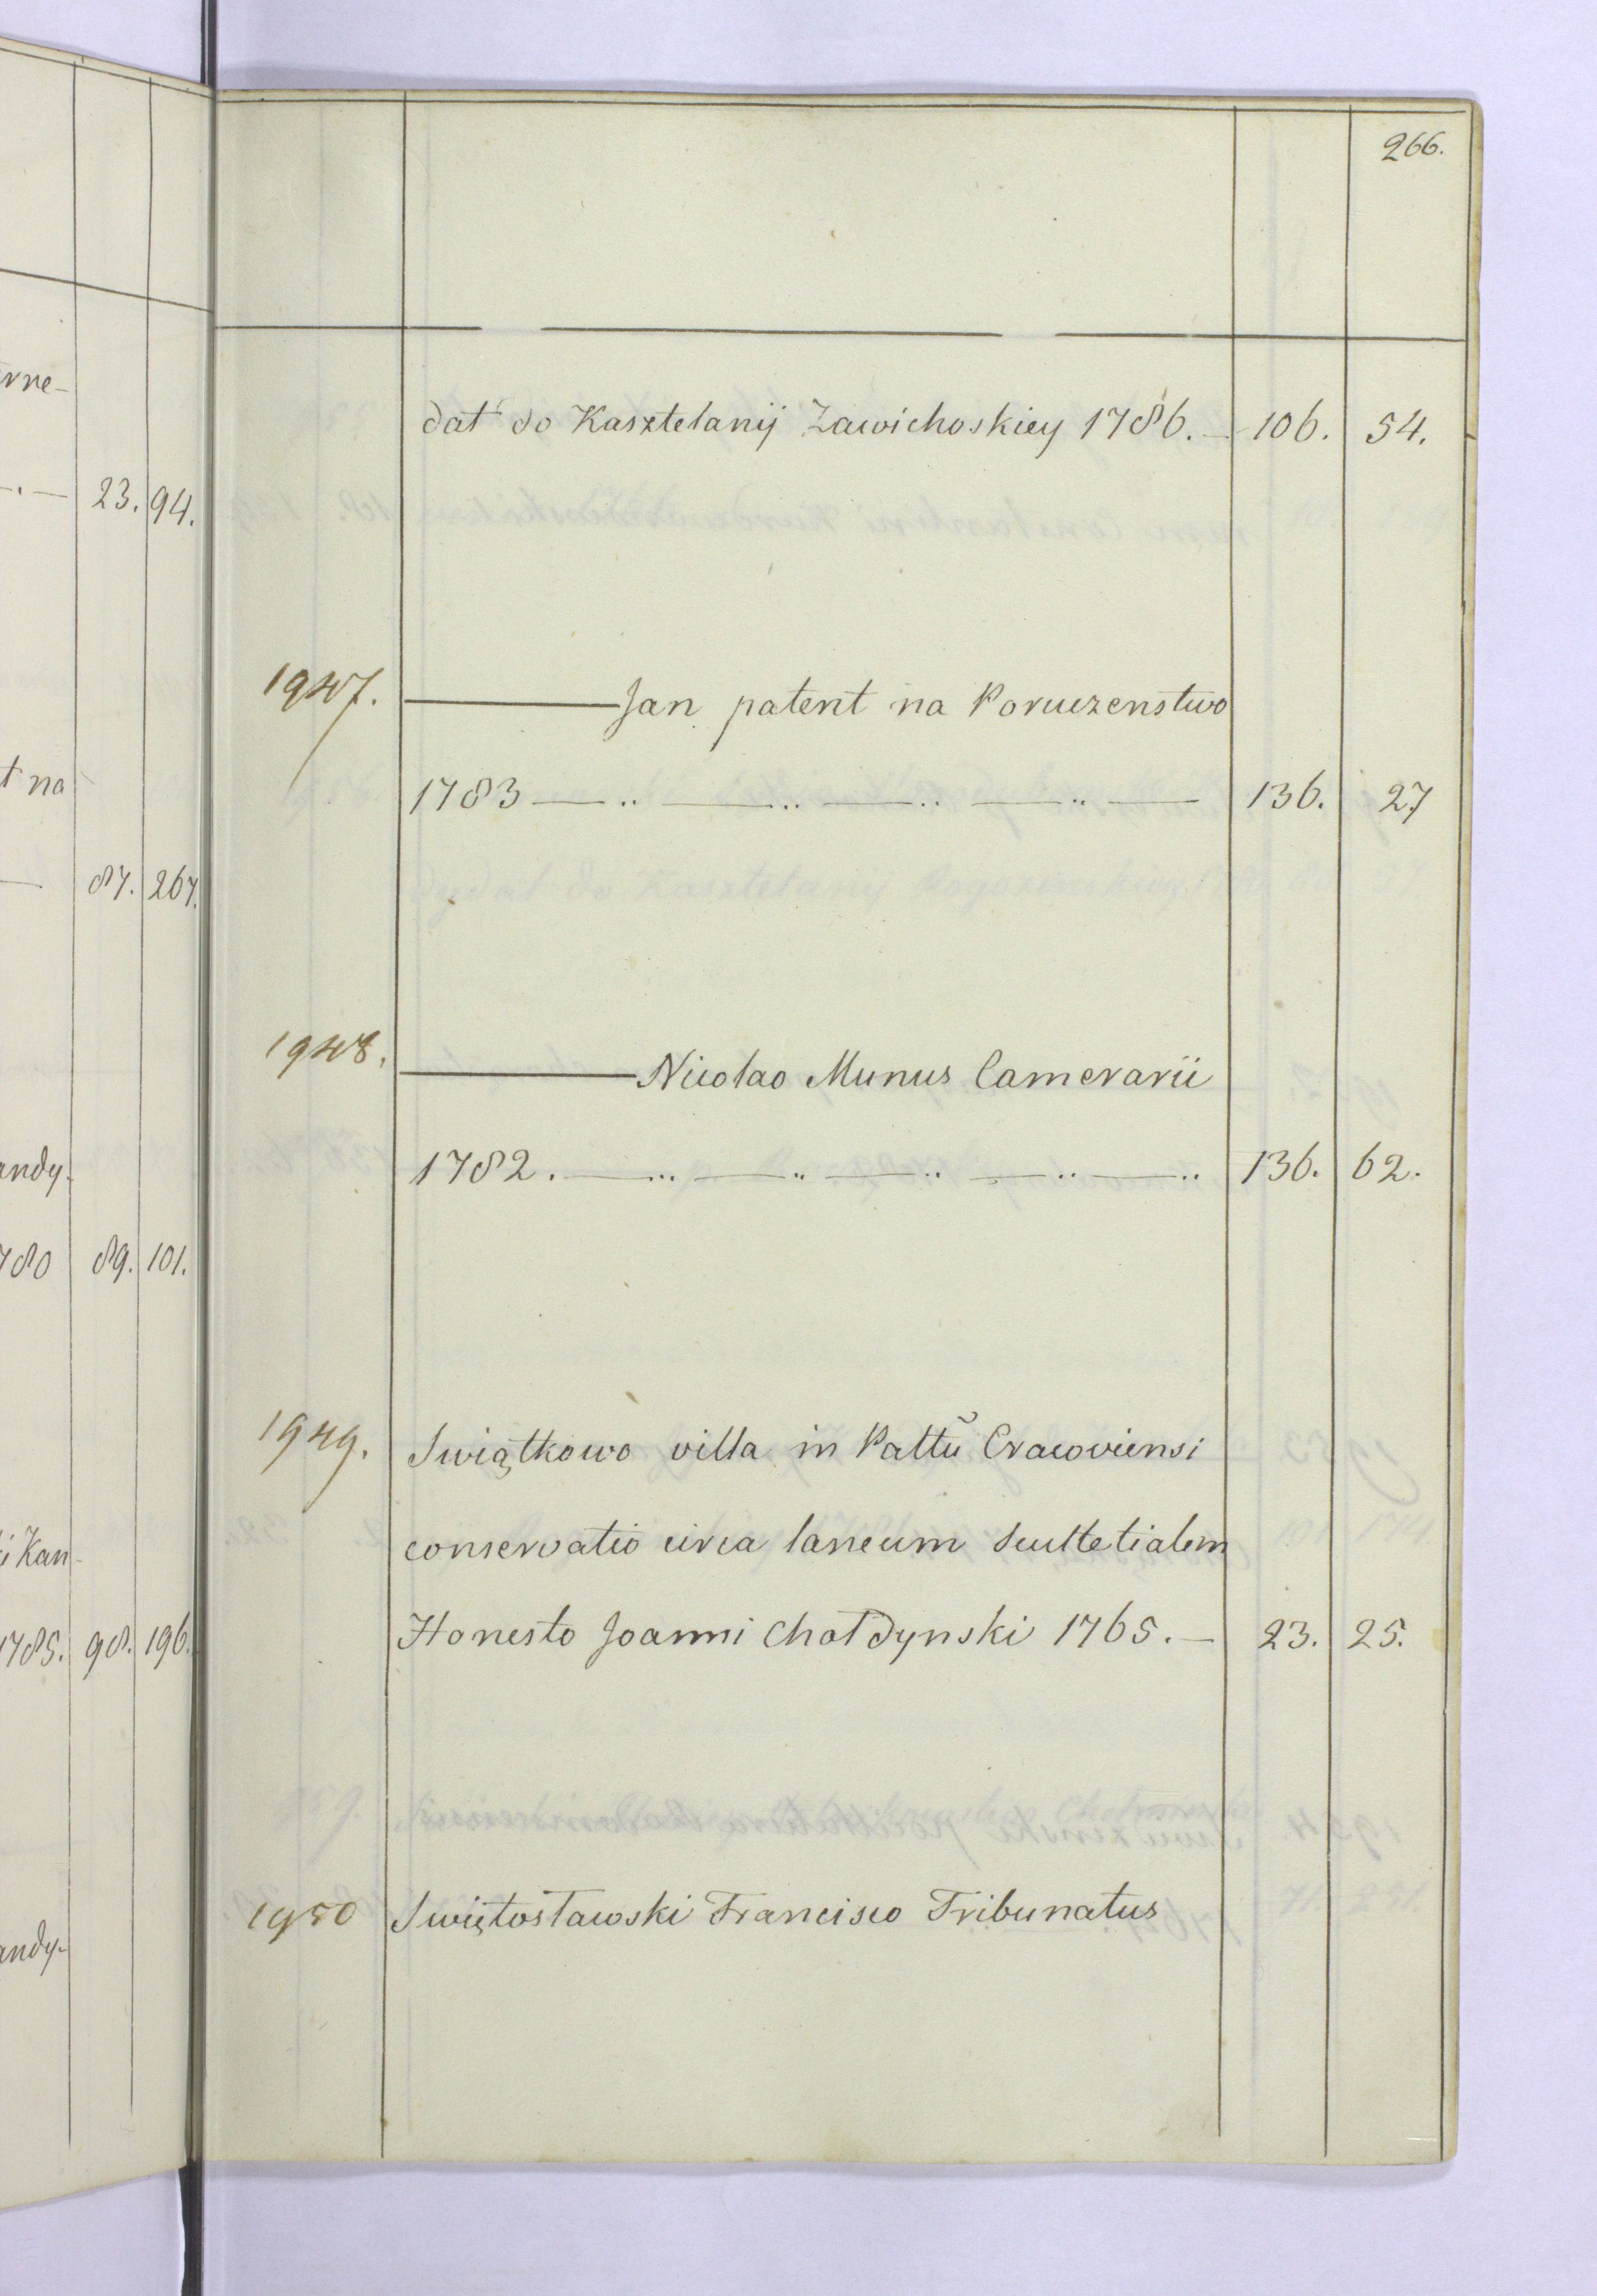 266.
rne-
23. 94.
t na
87. 267.
andy-
780 89. 101.
i Kan-
1785. 98. 196.
andy-
dat do Kasztelanij Zawichoskiey 1786. — 106. 54.
1947. ——— Jan patent na Poruczenstwo
1783 — .. — .. — .. — .. — 136. 27
1948. ——— Nicolao Munus Camerarii
1782. — ... — .. — .. — .. — .. 136. 62.
1949. Swiątkowo villa in Palttũ Cracoviensi
conservatio circa laneum Scultetialem
Honesto Joanni Chołdynski 1765. — 23. 25.
1950 Swiętosławski Francisco Tribunatus